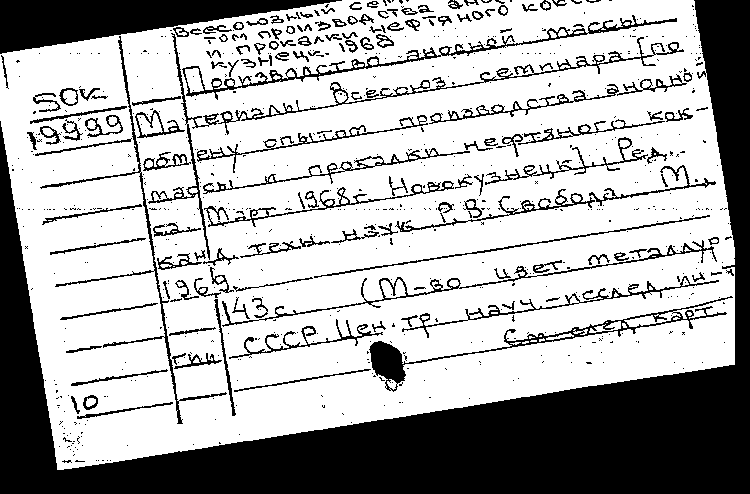 Всесоюзный сем
том производства анод
и прокалки нефтяного кокса.
кузнецк. 1968
Производство анодной массы.
50к
19999
Материалы Всесоюз. семинара [по
обмену опытом производства анодной
массы и прокалки нефтяного кок-
са. Март. 1968 г. Новокузнецк]. [Ред.
канд. техн. наук Р.В. Свобода. М.,
1969.
143 с. (М-во цвет. металлур-
гии СССР. Цен. тр. науч.-исслед. ин-т
См след карт.
10